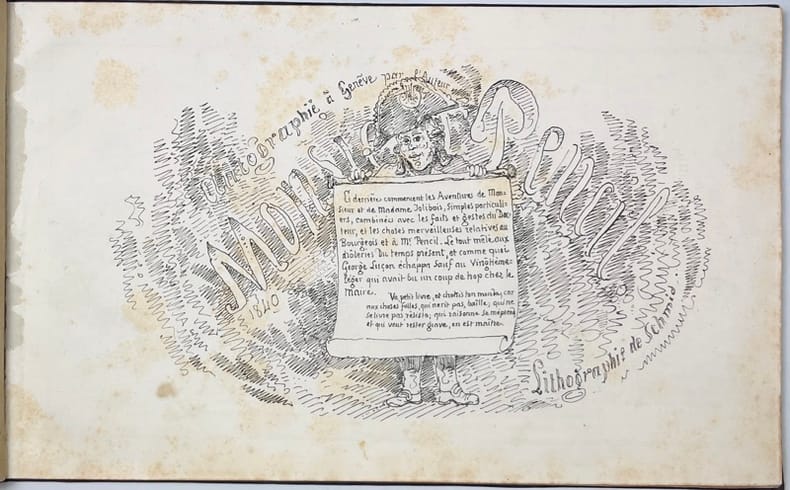 Autographié à Genève par l'Auteur
Mons^r Pencil
1840
Ci derrière commencent les Aventures de Mon=
sieur et de Madame Jolibois, simples particuli=
ers, combinées avec les faits et gestes du Doc=
teur, et les choses merveilleuses relatives au
Bourgeois et à Mr Pencil. Le tout mêlé aux
drôleries du temps présent, et comme quoi
George Luçon échappa sauf au Vingtième
léger qui avait bu un coup de trop chez le
Maire.
Va petit livre, et choisis ton monde, car
aux choses folles, qui ne rit pas, baille; qui ne
se livre pas, résiste; qui raisonne se méprend
et qui veut rester grave, en est maître.
Lithographie de Schmid.